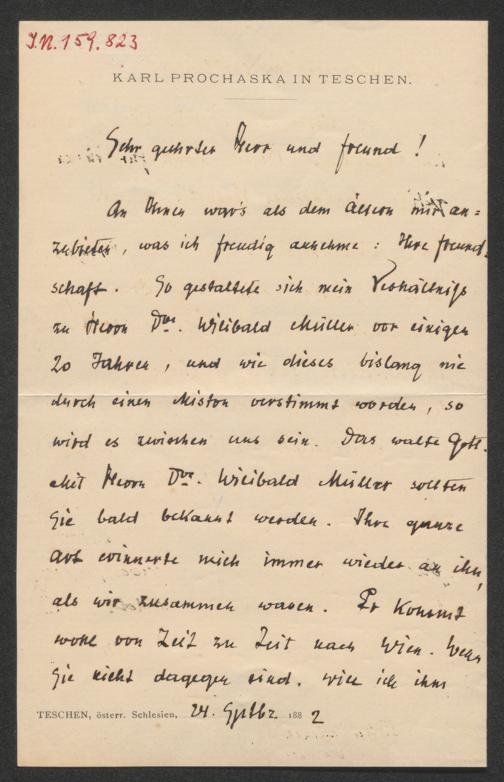 J.N. 159.823
KARL PROCHASKA IN TESCHEN.
Sehr geehrter Herr und Freund!
An Ihnen war's als dem Ältern mir an=
zubieten, was ich freudig annehme: Ihre Freund=
schaft. So gestaltete sich mein Verhältniß
zu Herrn Dre. Wilibald Müller vor einigen
20 Jahren, und wie dieses bislang nie
durch einen Miston verstimmt worden, so
wird es zwischen uns sein. Das walte Gott.
Mit Herrn Dre. Wilibald Müller sollten
Sie bald bekannt werden. Ihre ganze
Art erinnerte mich immer wieder an ihn,
als wir zusammen waren. Er kommt
wohl von Zeit zu Zeit nach Wien. Wenn
Sie nicht dagegen sind, will ich ihm
TESCHEN, österr. Schlesien, 24. Septbr 1882